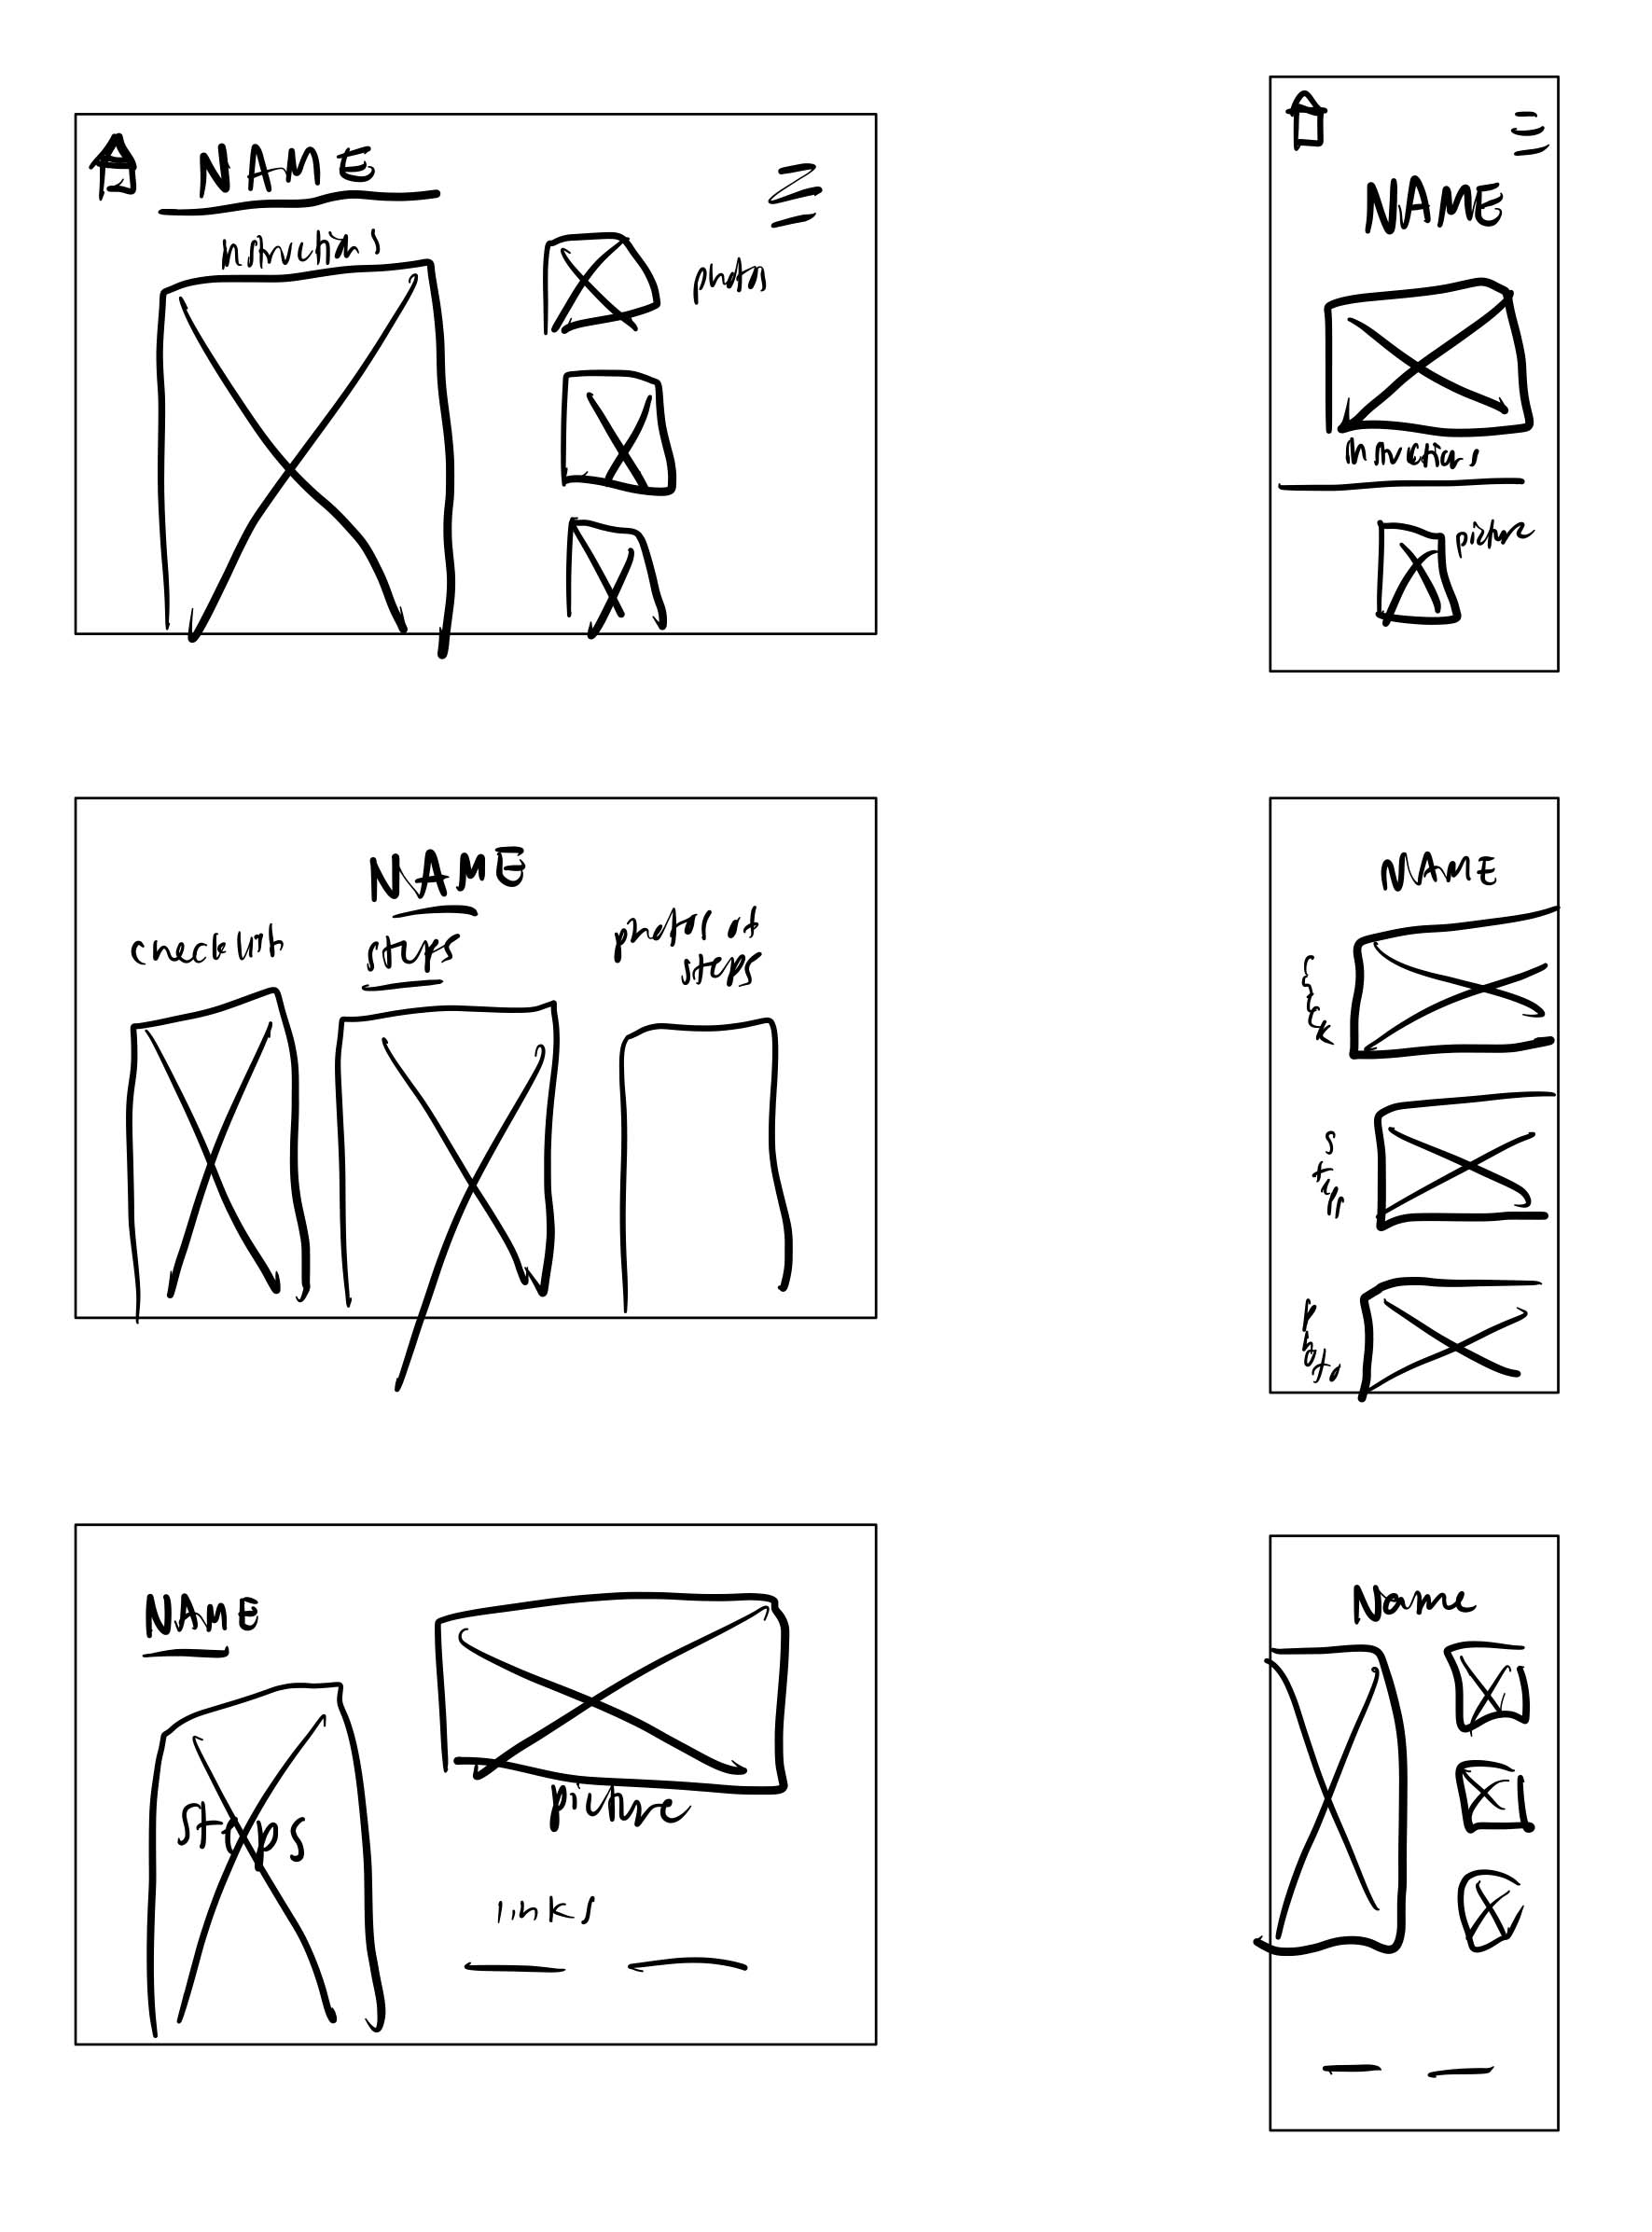 NAME
instructions
photos
NAME
instructions
picture
NAME
steps
photos of
steps
NAME
check
steps
photo
NAME
steps
picture
links
Name